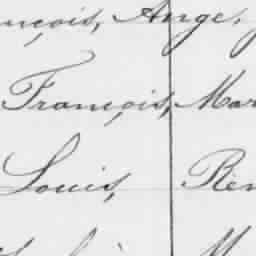 nçois, Ange,
François, Mar
Louis, Rén